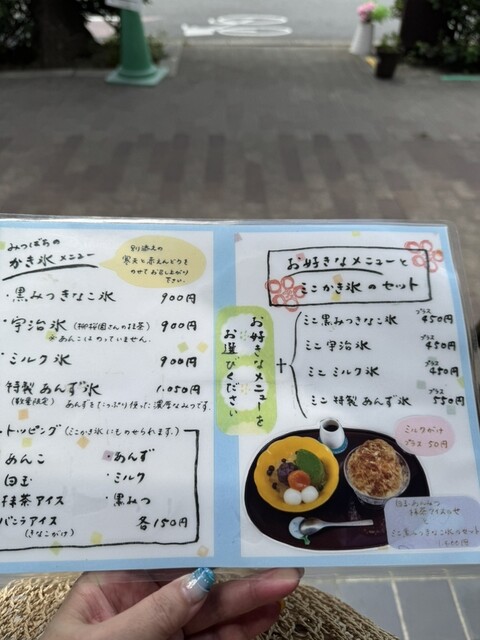 みつばちの
かき氷メニュー
別添えの
寒天と赤えんどうを
のせてお召し上がり
下さい。
・黒みつきなこ氷 900円
・宇治氷(柳桜園さんの抹茶) 900円
※あんこはのっていません。
・ミルク氷 900円
特製あんず氷 1,050円
(数量限定) あんずをたっぷり使った濃厚なみつです。
トッピング(ミニかき氷にものせられます。)
あんこ ・あんず
白玉 ・ミルク
抹茶アイス ・黒みつ
バニラアイス 各150円
(きなこがけ)
お好きなメニューを
お選びください
+
お好きなメニューと
ミニかき氷のセット
ミニ黒みつきなこ氷 プラス450円
ミニ宇治氷 プラス450円
ミニミルク氷 プラス450円
ミニ特製あんず氷 プラス550円
ミルクがけ
プラス50円
白玉あんみつ
抹茶アイスのせ
と
ミニ黒みつきなこ氷のセット